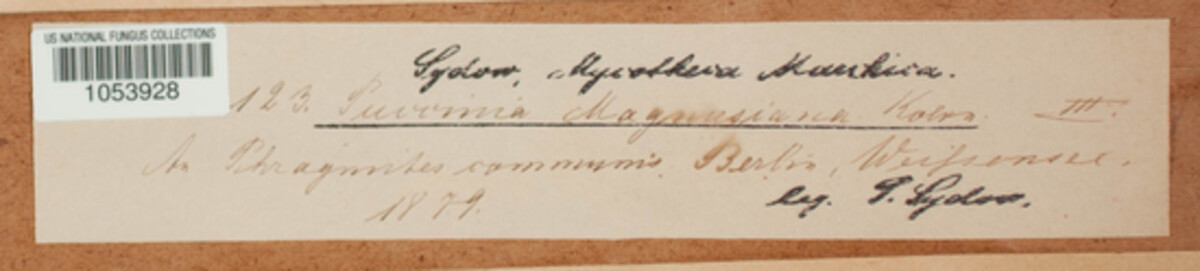 US NATIONAL FUNGUS COLLECTIONS
1053928
Sydow, Mycotheca Marchica.
123. Puccinia Magnusiana Körn. III.
An Phragmites communis. Berlin, Weissensee.
1879.
leg. P. Sydow.